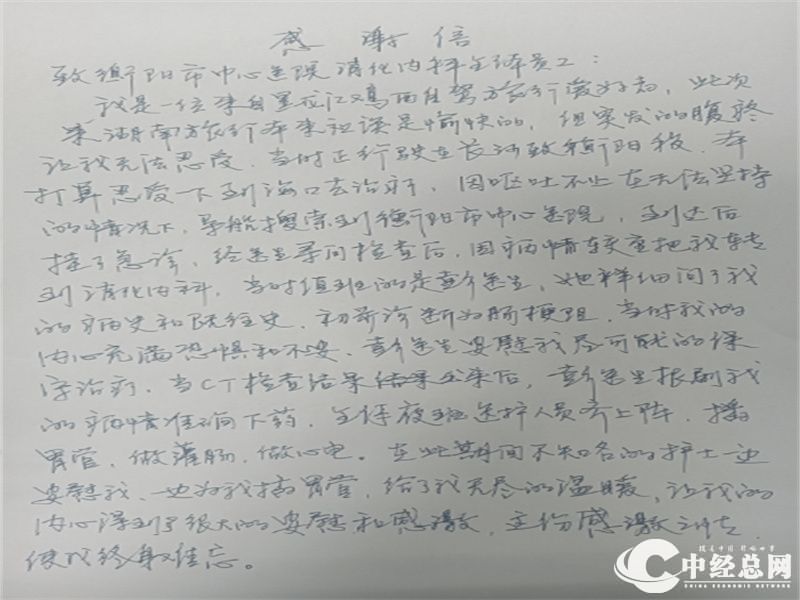 感谢信
致衡阳市中心医院消化内科全体员工：
我是一位来自黑龙江双鸭西自驾旅行爱好者，此次
来湖南旅行本来应该是愉快的，但突发的腹疼
让我无法忍受，当时正行驶在长沙致衡阳段，本
打算忍受一下到海口去治疗，因呕吐不止在无法坚持
的情况下，导航搜索到衡阳市中心医院，到达后
挂了急诊，经医生寻问检查后，因病情较重把我转
到消化内科，当时值班的是彭医生，她详细问了我
的病史和既往史，初步诊断为肠梗阻，当时我的
内心充满恐惧和不安，彭医生安慰我尽可能的保
守治疗，当CT检查结果出来后，彭医生根据我
的病情准确下药，全体夜班医护人员齐上阵，插
胃管，做灌肠，做心电。在此期间不知名的护士一边
安慰我，一边为我插胃管，给了我无尽的温暖，让我的
内心得到了很大的安慰和感激，这份感激之情
使我终身难忘。
中经总网
CHINA ECONOMIC NETWORK